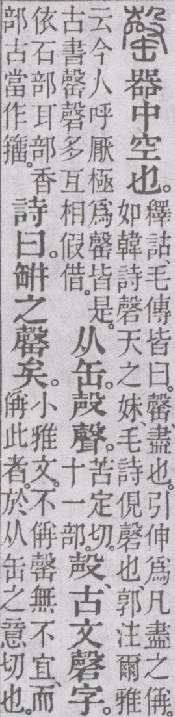 罄
器中空也。
釋詁、毛傳皆曰。罄、盡也。引伸爲凡盡之偁。
如韓詩磬天之妹、毛詩俔磬也、郭注爾雅
云今人呼厭極爲罄皆是。
古書罄磬多互相假借。
从缶。殸聲。
苦定切。
十一部。
殸、古文磬字。
依石部耳部。香
部古當作籒。
詩曰。缾之罄矣。
小雅文。不偁罄無不宜、而
偁此者。於从缶之意切也。